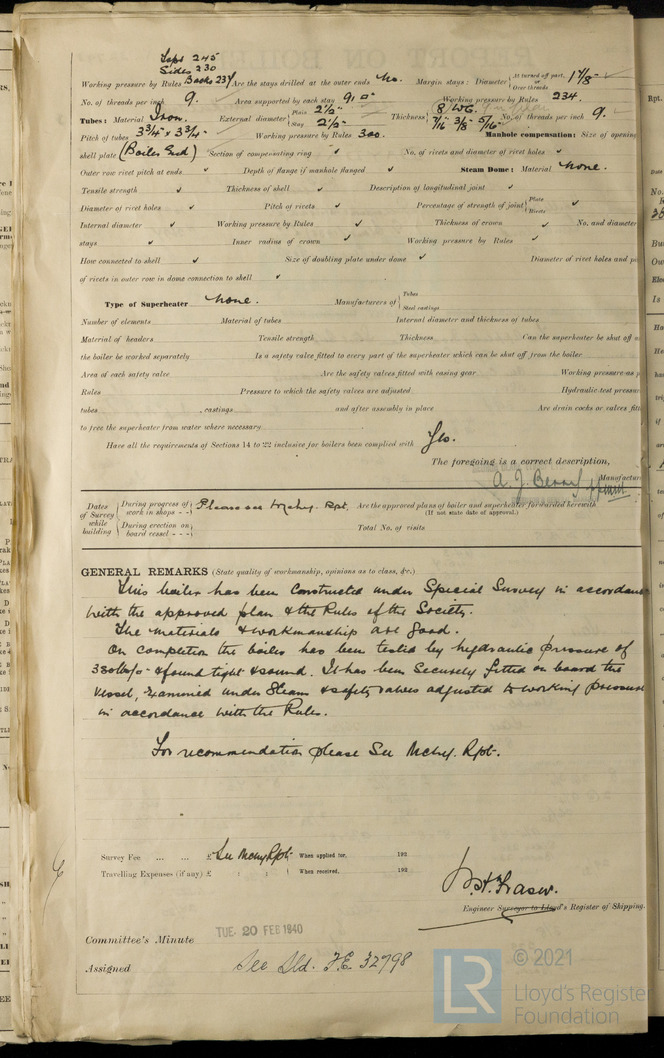 Tops 245
Sides 230
Working pressure by Rules Backs 234 Are the stays drilled at the outer ends No. Margin stays: Diameter { At turned off part, or Over threads 1 7/8"
No. of threads per inch 9. Area supported by each stay 91 □" Working pressure by Rules 234.
Tubes: Material Iron. External diameter { Plain 2½" Stay 2½" Thickness { 8 WG. 7/16" 3/8" 5/16" No. of threads per inch 9.
Pitch of tubes 3¾" x 3¾" Working pressure by Rules 300. Manhole compensation: Size of opening
shell plate (Boiler End) Section of compensating ring ✓ No. of rivets and diameter of rivet holes ✓
Outer row rivet pitch at ends ✓ Depth of flange if manhole flanged ✓ Steam Dome: Material None.
Tensile strength ✓ Thickness of shell ✓ Description of longitudinal joint ✓
Diameter of rivet holes ✓ Pitch of rivets ✓ Percentage of strength of joint { Plate Rivets ✓
Internal diameter ✓ Working pressure by Rules ✓ Thickness of crown ✓ No. and diameter
stays ✓ Inner radius of crown ✓ Working pressure by Rules ✓
How connected to shell ✓ Size of doubling plate under dome ✓ Diameter of rivet holes and pi
of rivets in outer row in dome connection to shell ✓
Type of Superheater None. Manufacturers of { Tubes Steel castings
Number of elements Material of tubes Internal diameter and thickness of tubes
Material of headers Tensile strength Thickness Can the superheater be shut off a
the boiler be worked separately Is a safety valve fitted to every part of the superheater which can be shut off from the boiler
Area of each safety valve Are the safety valves fitted with easing gear Working pressure as p
Rules Pressure to which the safety valves are adjusted Hydraulic test pressur
tubes, castings and after assembly in place Are drain cocks or valves fitt
to free the superheater from water where necessary
Have all the requirements of Sections 14 to 22 inclusive for boilers been complied with Yes.
The foregoing is a correct description,
Manufactur
Dates of Survey while building { During progress of work in shops - - Please see Mchy. Rpt. Are the approved plans of boiler and superheater forwarded herewith (If not state date of approval.)
During erection on board vessel - - - Total No. of visits
GENERAL REMARKS (State quality of workmanship, opinions as to class, &c.)
This boiler has been constructed under Special Survey in accordanc
with the approved plan & the Rules of the Society.
The materials & workmanship are good.
On completion the boiler has been tested by hydraulic pressure of
& found tight & sound. It has been securely fitted on board the
Vessel, examined under Steam & safety valves adjusted to working pressure
in accordance with the Rules.
For recommendation please See Mchy. Rpt.
Survey Fee ... ... £ See Mchy Rpt. When applied for, 192
Travelling Expenses (if any) £ : : When received, 192
Fraser.
Engineer Surveyor to Lloyd's Register of Shipping.
Committee's Minute TUE. 20 FEB 1940
Assigned See F.E. 32798
LR © 2021
Lloyd's Register
Foundation